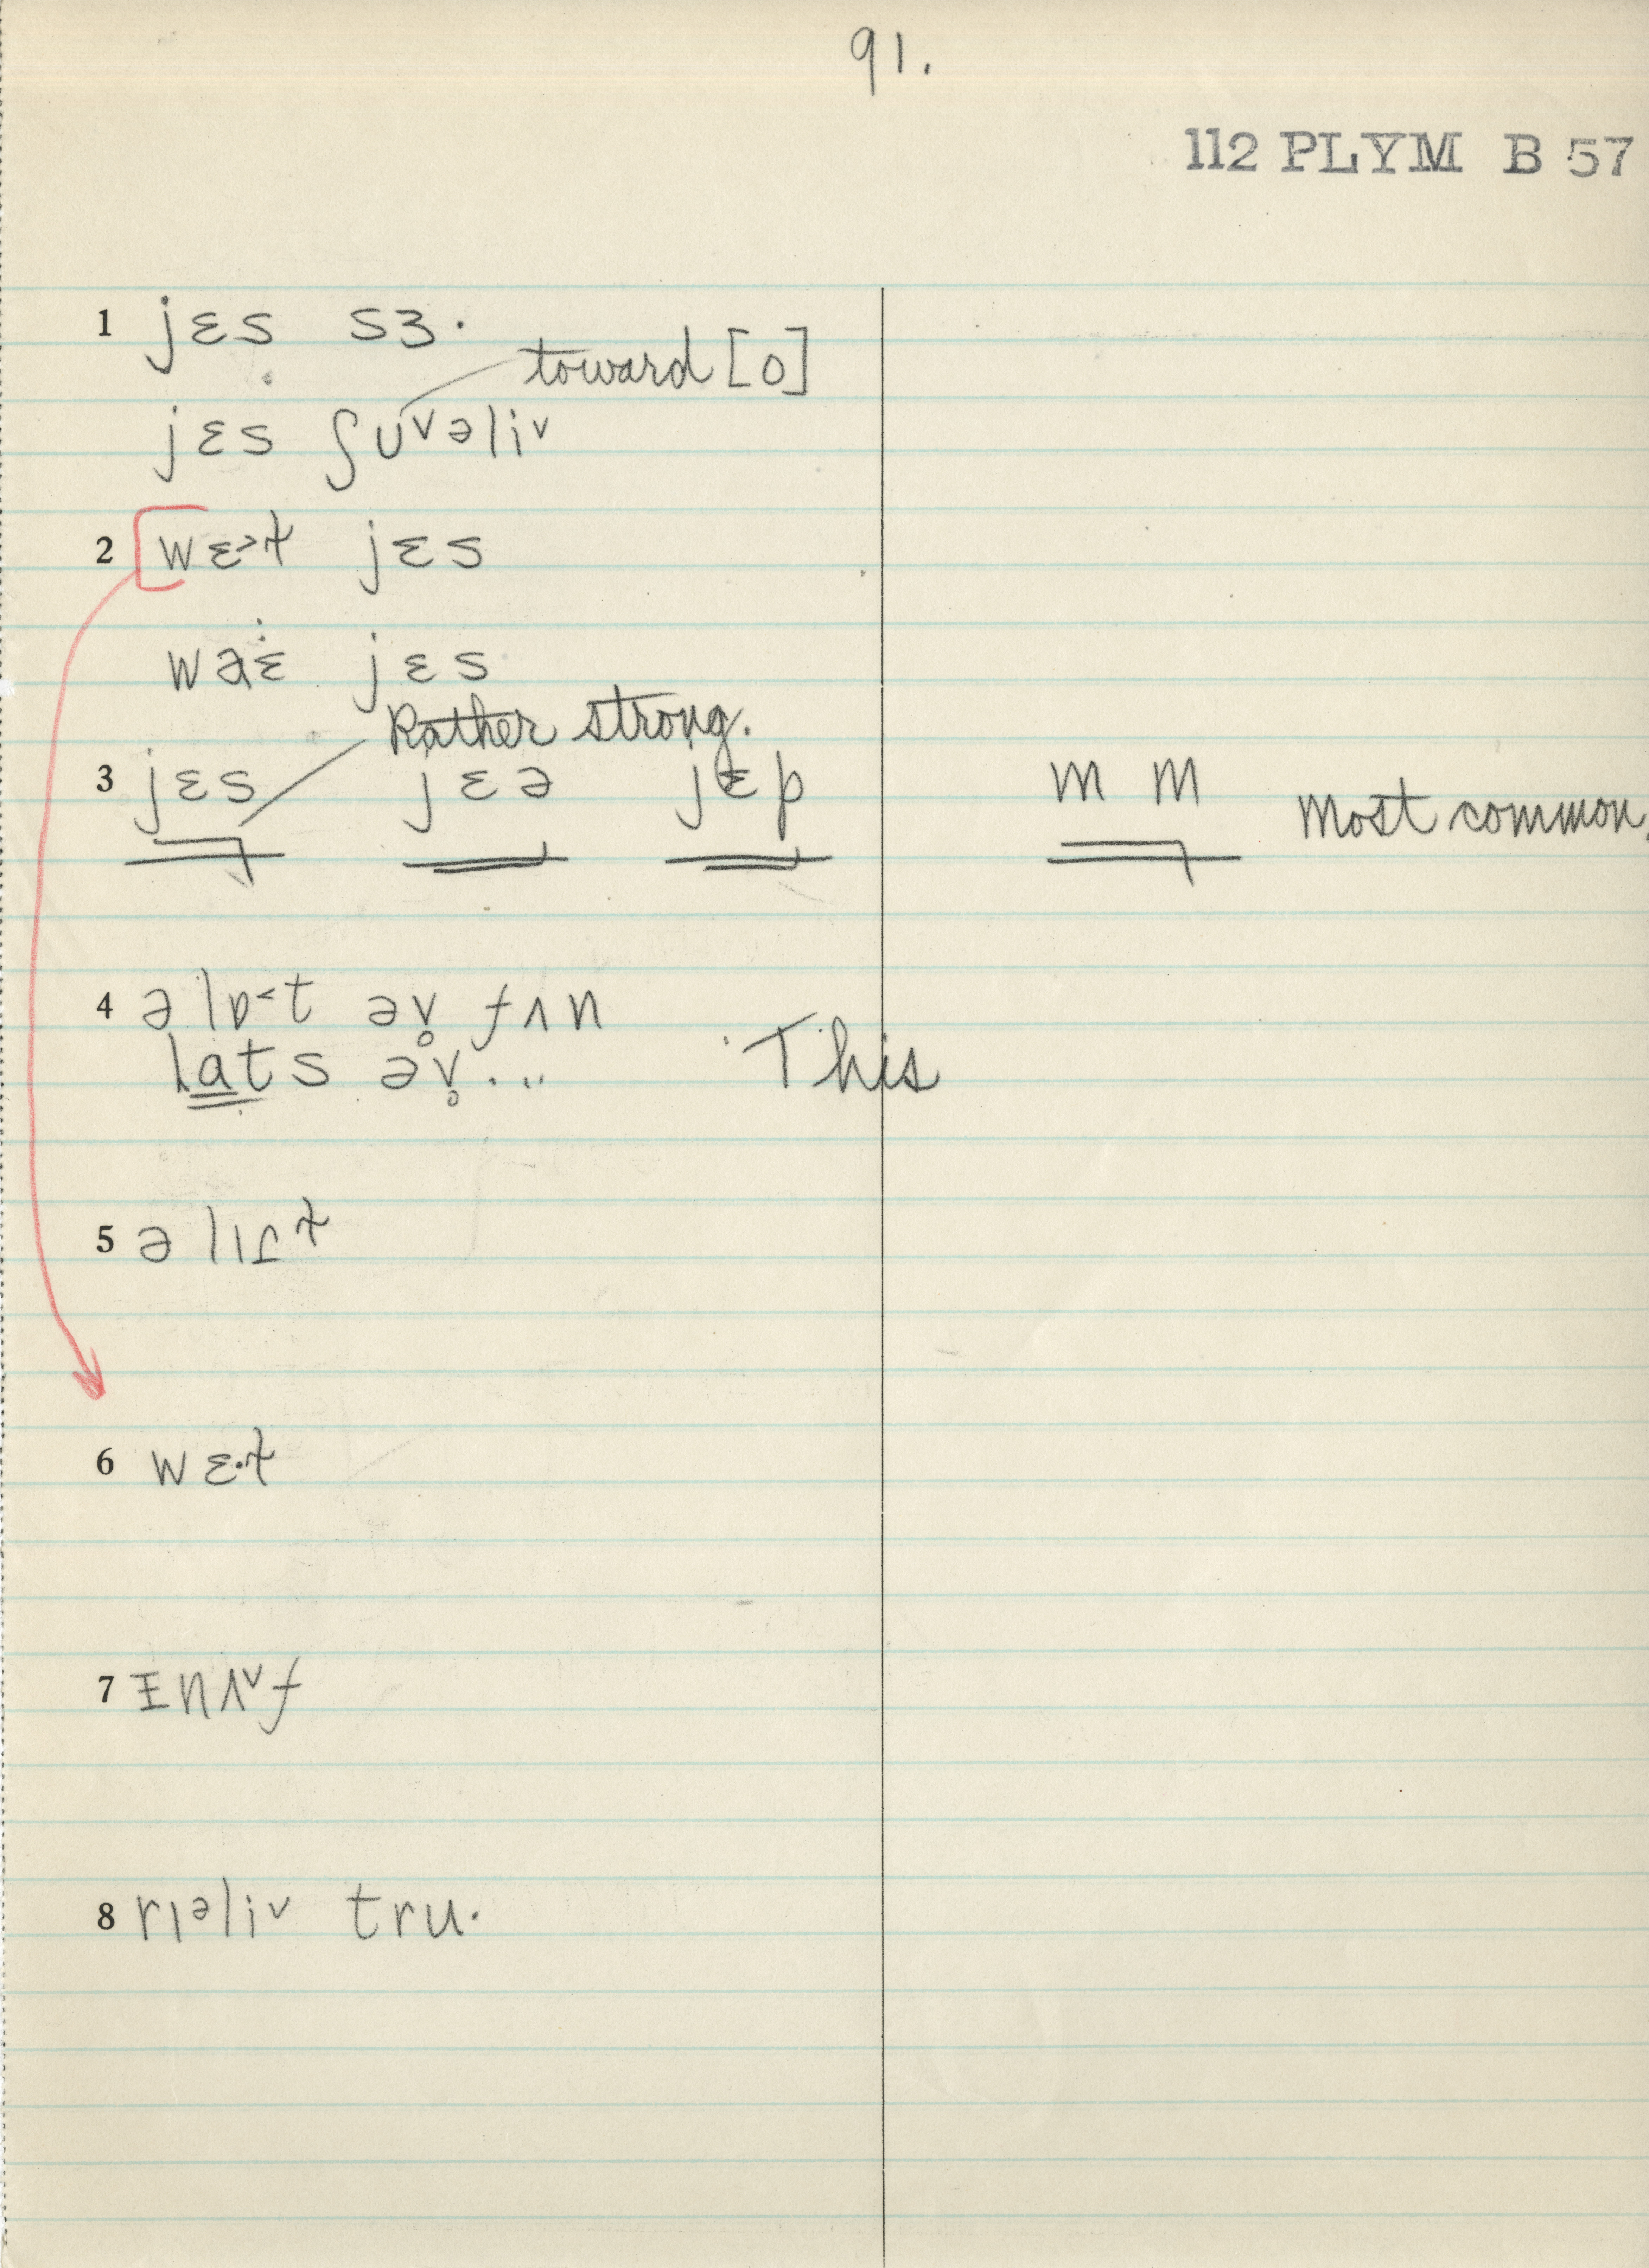 91.
112 PLYM B 57
1 jɛs sɜ·
toward [o]
jɛs ʃʊ˅əli˅
2 wɛ˃ɫ jɛs
jɛs
Rather strong.
3 jɛs jɛə jɛp m m Most common.
4 ə lɒ˂t əv̥ fʌn
lats əv̥... This
5 ə
6 wɛ·ɫ
7 ɪnʌ˅f
8 rɪᵊli˅ tru·